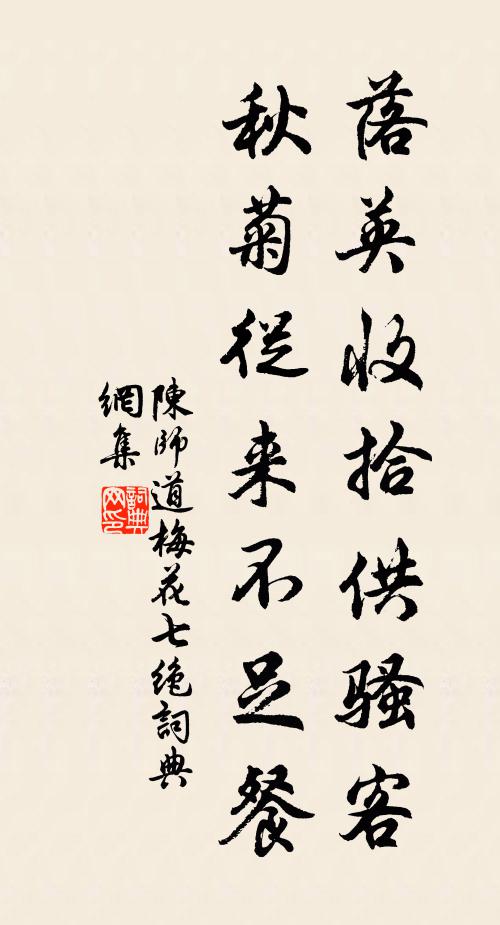 落英收拾供騷客
秋菊從来不足餐
陳師道梅花七絶詞典
網集
詞典
网印